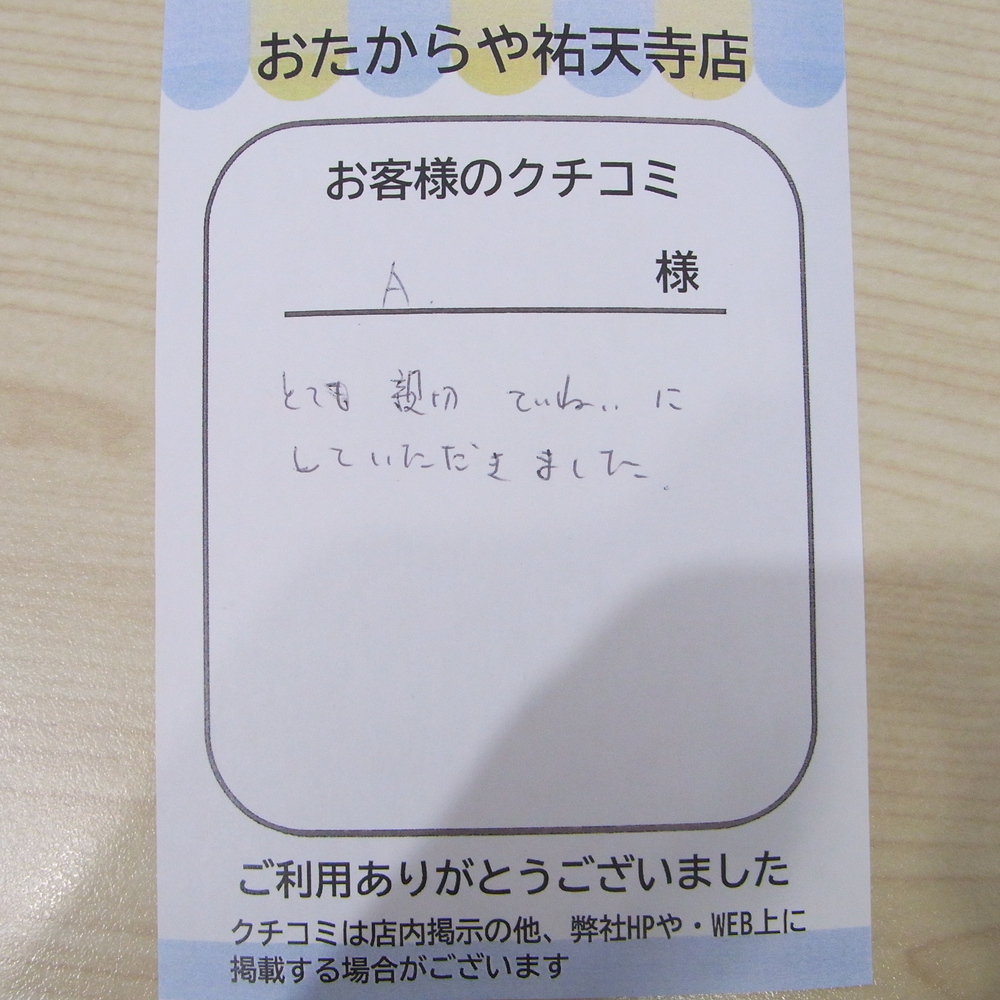 おたからや祐天寺店
お客様のクチコミ
A. 様
とても 親切 ていねいに
していただきました.
ご利用ありがとうございました
クチコミは店内掲示の他、弊社HPや・WEB上に
掲載する場合がございます